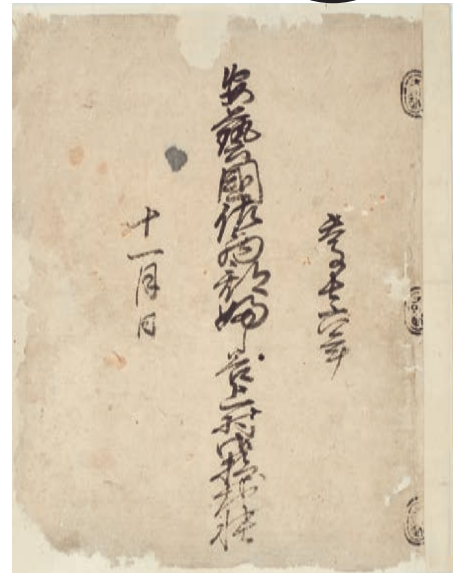 慶長六年
安藝國佐西郡婦谷上村御検地帳
十一月日